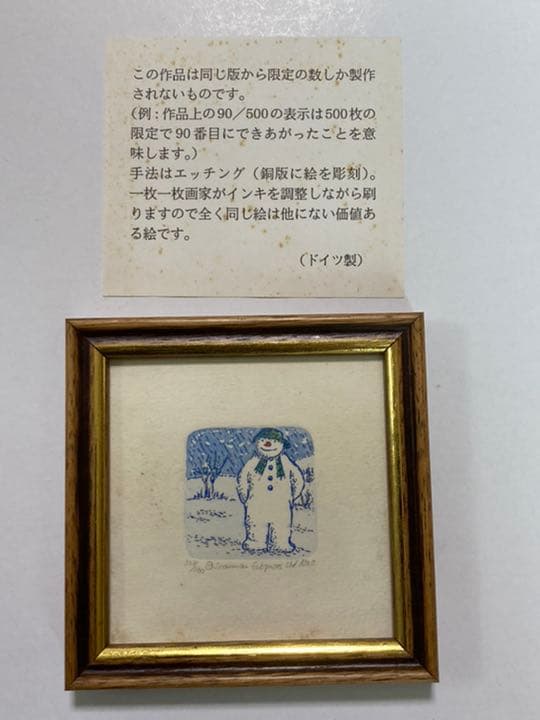 この作品は同じ版から限定の数しか製作
されないものです。
(例:作品上の90/500の表示は500枚の
限定で90番目にできあがったことを意
味します。)
手法はエッチング(銅版に絵を彫刻)。
一枚一枚画家がインキを調整しながら刷
りますので全く同じ絵は他にない価値あ
る絵です。
(ドイツ製)
© Snowman Enterprises Ltd